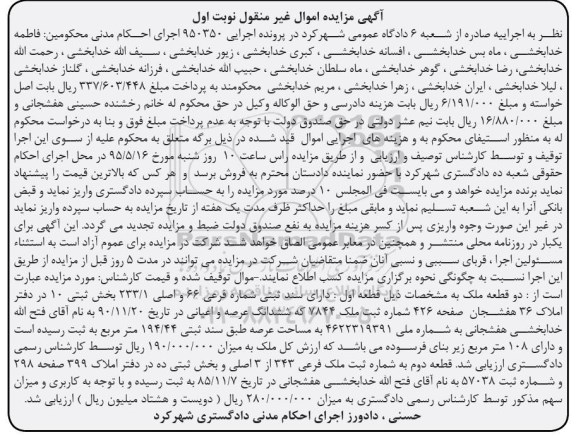 آگهی مزایده اموال غیر منقول نوبت اول
نظر به اجراییه صادره از شعبه ۶ دادگاه عمومی شهرکرد در پرونده اجرایی ۹۵۰۳۵۰ اجرای احکام مدنی محکومین: فاطمه
خدابخشی ، ماه بس خدابخشی ، افسانه خدابخشی ، کبری خدابخشی ، زیور خدابخشی ، سیف الله خدابخشی ، رحمت الله
خدابخشی، رضا خدابخشی ، گوهر خدابخشی ، ماه سلطان خدابخشی ، حبیب الله خدابخشی ، فرزانه خدابخشی ، گلناز خدابخشی
، لیلا خدابخشی ، ایران خدابخشی ، زهرا خدابخشی ، مریم خدابخشی محکومند به پرداخت مبلغ ۳۳۷/۶۰۳/۴۴۸ ریال بابت اصل
خواسته و مبلغ ۶/۱۹۱/۰۰۰ ریال بابت هزینه دادرسی و حق الوکاله وکیل در حق محکوم له خانم رخشنده حسینی هفشجانی و
مبلغ ۱۶/۸۸۰/۰۰۰ ریال بابت نیم عشر دولتی در حق صندوق دولت با توجه به عدم پرداخت مبلغ فوق و بنا به درخواست محکوم
له به منظور استیفای محکوم به و هزینه های اجرایی اموال قید شده در ذیل برکه متعلق به محکوم علیه از سوی این اجرا
توقیف و توسط کارشناس توصیف و ارزیابی و از طریق مزایده راس ساعت ۱۰ روز شنبه مورخ ۹۵/۵/۱۶ در محل اجرای احکام
حقوقی شعبه ده دادگستری شهرکرد با حضور نماینده دادستان محترم به فروش برسد و هر کس که بالاترین قیمت را پیشنهاد
نماید برنده مزایده خواهد و می بایست فی المجلس ۱۰ درصد مورد مزایده را به حساب سپرده دادگستری واریز نماید و قبض
بانکی آنرا به این شعبه تسلیم نماید و مابقی مبلغ را حداکثر ظرف مدت یک هفته از تاریخ مزایده به حساب سپرده واریز نماید
در غیر این صورت وجوه واریزی پس از کسر هزینه مزایده به نفع صندوق دولت ضبط و مزایده تجدید می گردد. این آگهی برای
یکبار در روزنامه محلی منتشر و همچنین در معابر عمومی الصاق خواهد شد. شرکت در مزایده برای عموم آزاد است به استثناء
مسئولین اجرا ، اقربای سببی و نسبی آنان ضمنا متقاضیان شرکت در مزایده می توانند در مدت ۵ روز قبل از مزایده از طریق
این اجرا نسبت به چگونگی نحوه برگزاری مزایده کسب اطلاع نمایند. اموال توقیف شده و قیمت کارشناس: مورد مزایده عبارت
است از : دو قطعه ملک به مشخصات ذیل قطعه اول : دارای پلاک ثبتی شماره فرعی ۶۶ و اصلی ۲۳۳/۱ بخش ثبتی ۱۰ در دفتر
املاک ۳۶ هفشجان صفحه ۴۲۶ شماره ثبت ملک ۷۸۴۴ که ششدانگ عرصه و اعیانی در تاریخ ۹۰/۱۱/۲۰ به نام آقای فتح الله
خدابخشی هفشجانی به شماره ملی ۴۶۲۲۳۱۹۳۹۱ به مساحت عرصه طبق سند ثبتی ۱۹۴/۴۴ متر مربع به ثبت رسیده است
و دارای ۱۰۸ متر مربع زیر بنای فرسوده می باشد که ارزش کل ملک به میزان ۱۹۰/۰۰۰/۰۰۰ ریال توسط کارشناس رسمی
دادگستری ارزیابی شد. قطعه دوم به شماره ثبت ملک فرعی ۳۴۳ از ۳ اصلی و بخش ثبتی ده در دفتر املاک ۳۹۹ صفحه ۲۹۸
و شماره ثبت ۵۷۰۳۸ به نام آقای فتح الله خدابخشی هفشجانی در تاریخ ۸۵/۱۱/۷ به ثبت رسیده و با توجه به کاربری و میزان
سهم مذکور توسط کارشناس رسمی دادگستری به میزان ۲۸۰/۰۰۰/۰۰۰ ریال ( دویست و هشتاد میلیون ریال ) ارزیابی شد.
حسنی ، دادورز اجرای احکام مدنی دادگستری شهرکرد